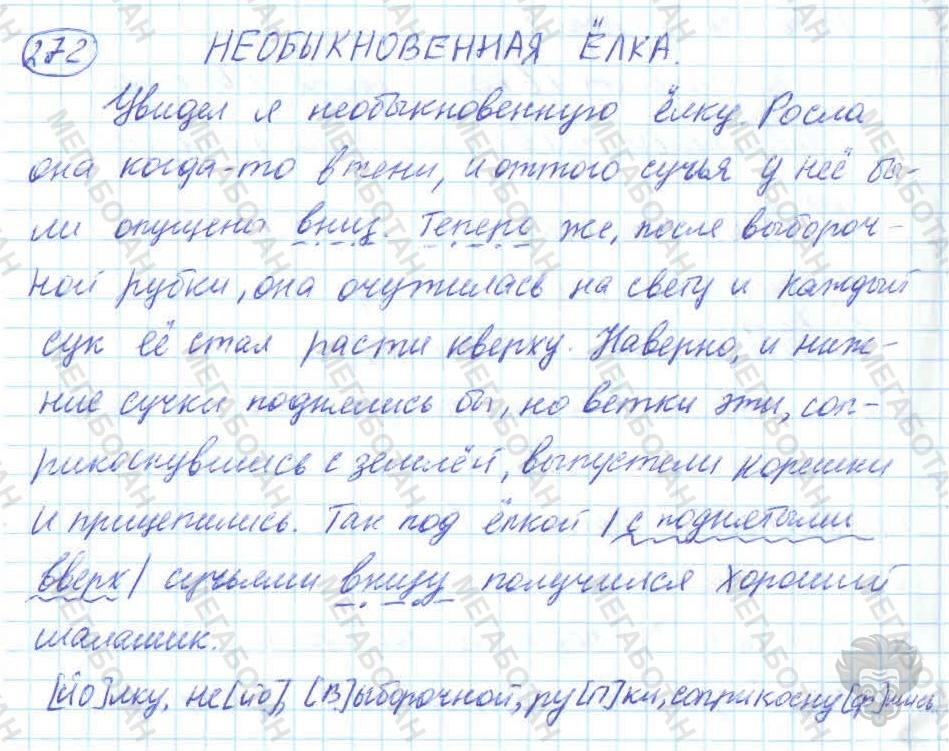 272 НЕОБЫКНОВЕННАЯ ЁЛКА.
Увидел я необыкновенную ёлку. Росла
она когда-то в тени, и оттого сучья у неё бы-
ли опущены вниз. Теперь же, после выбороч-
ной рубки, она очутилась на свету и каждый
сук её стал расти кверху. Наверно, и ниж-
ние сучки поднялись бы, но ветки эти, соп-
рикоснувшись с землёй, выпустели корешки
и прицепились. Так под ёлкой / с поднятыми
вверх / сучьями внизу получился хороший
шалашик.
[йо]лку, не[йо], [в]ыборочной, ру[п]ки, соприкосну[ф]шись
МЕГАБОТАН